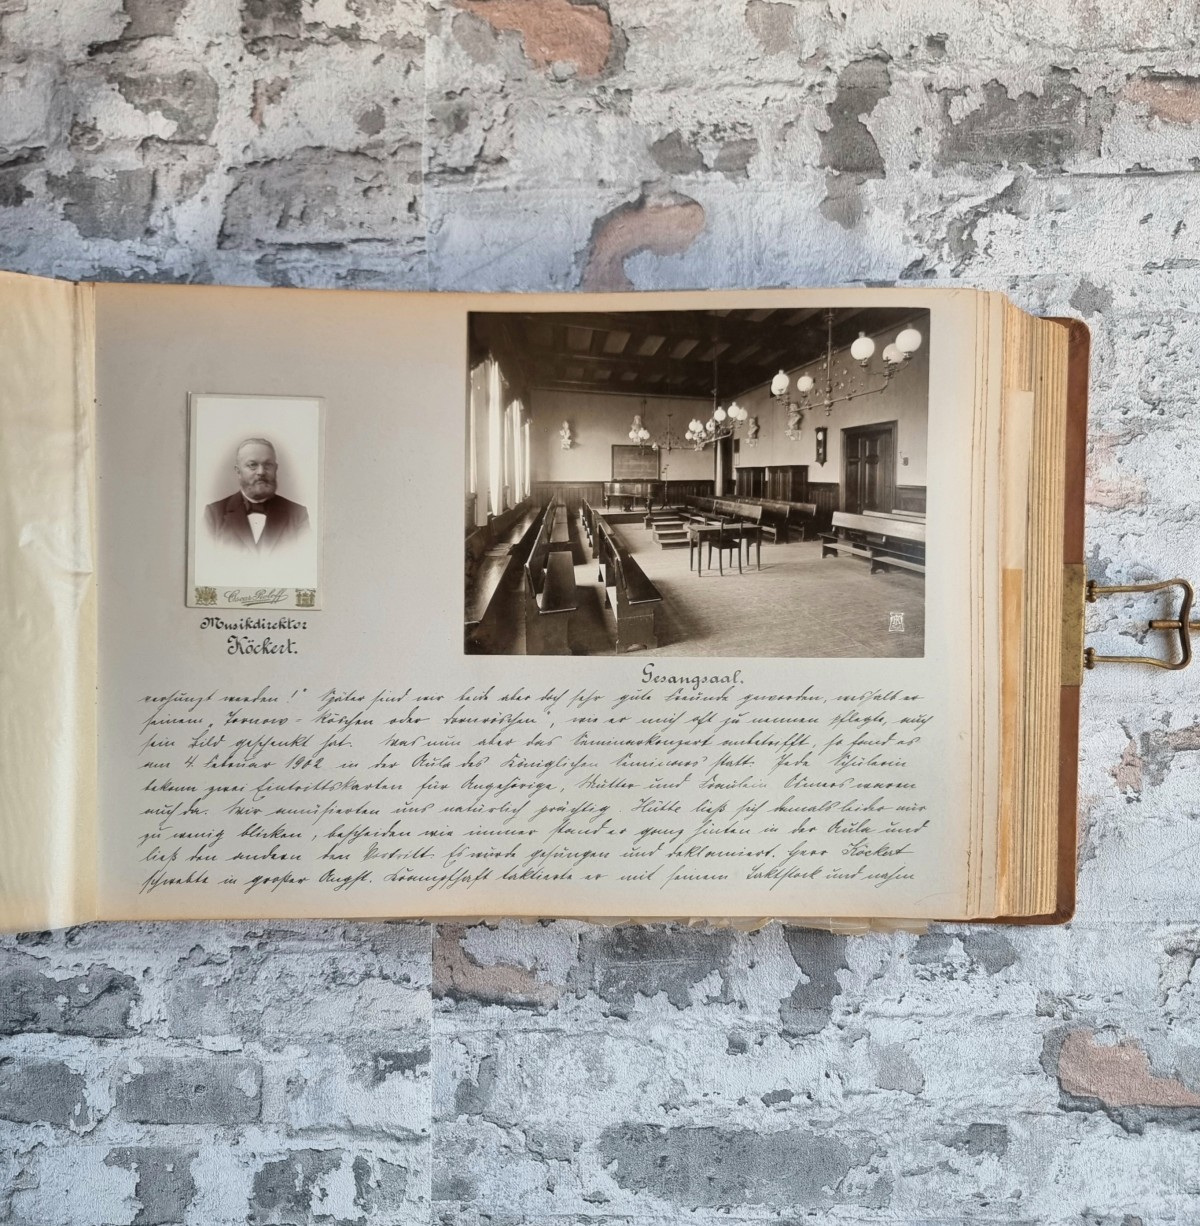 Oscar Roloff
Musikdirektor
Köckert.
Gesangsaal.
verhunzt werden!" Später sind wir beide aber doch sehr gute Freunde geworden, weshalb er
seinem „Tornow-Röschen oder Dornröschen", wie er mich oft zu nennen pflegte, auch
sein Bild geschenkt hat. Was nun aber das Seminarkonzert anbetrifft, so fand es
am 4. Februar 1902 in der Aula des Königlichen Seminars statt. Jede Schülerin
bekam zwei Eintrittskarten für Angehörige, Mutter und Fräulein waren
auch da. Wir amüsierten uns natürlich prächtig. Hütte ließ sich damals leider nur
zu wenig blicken, bescheiden wie immer stand er ganz hinten in der Aula und
ließ den andern den Vortritt. Es wurde gesungen und deklamiert. Herr Köckert
schwebte in großer Angst. Krampfhaft taktierte er mit seinem Taktstock und nahm